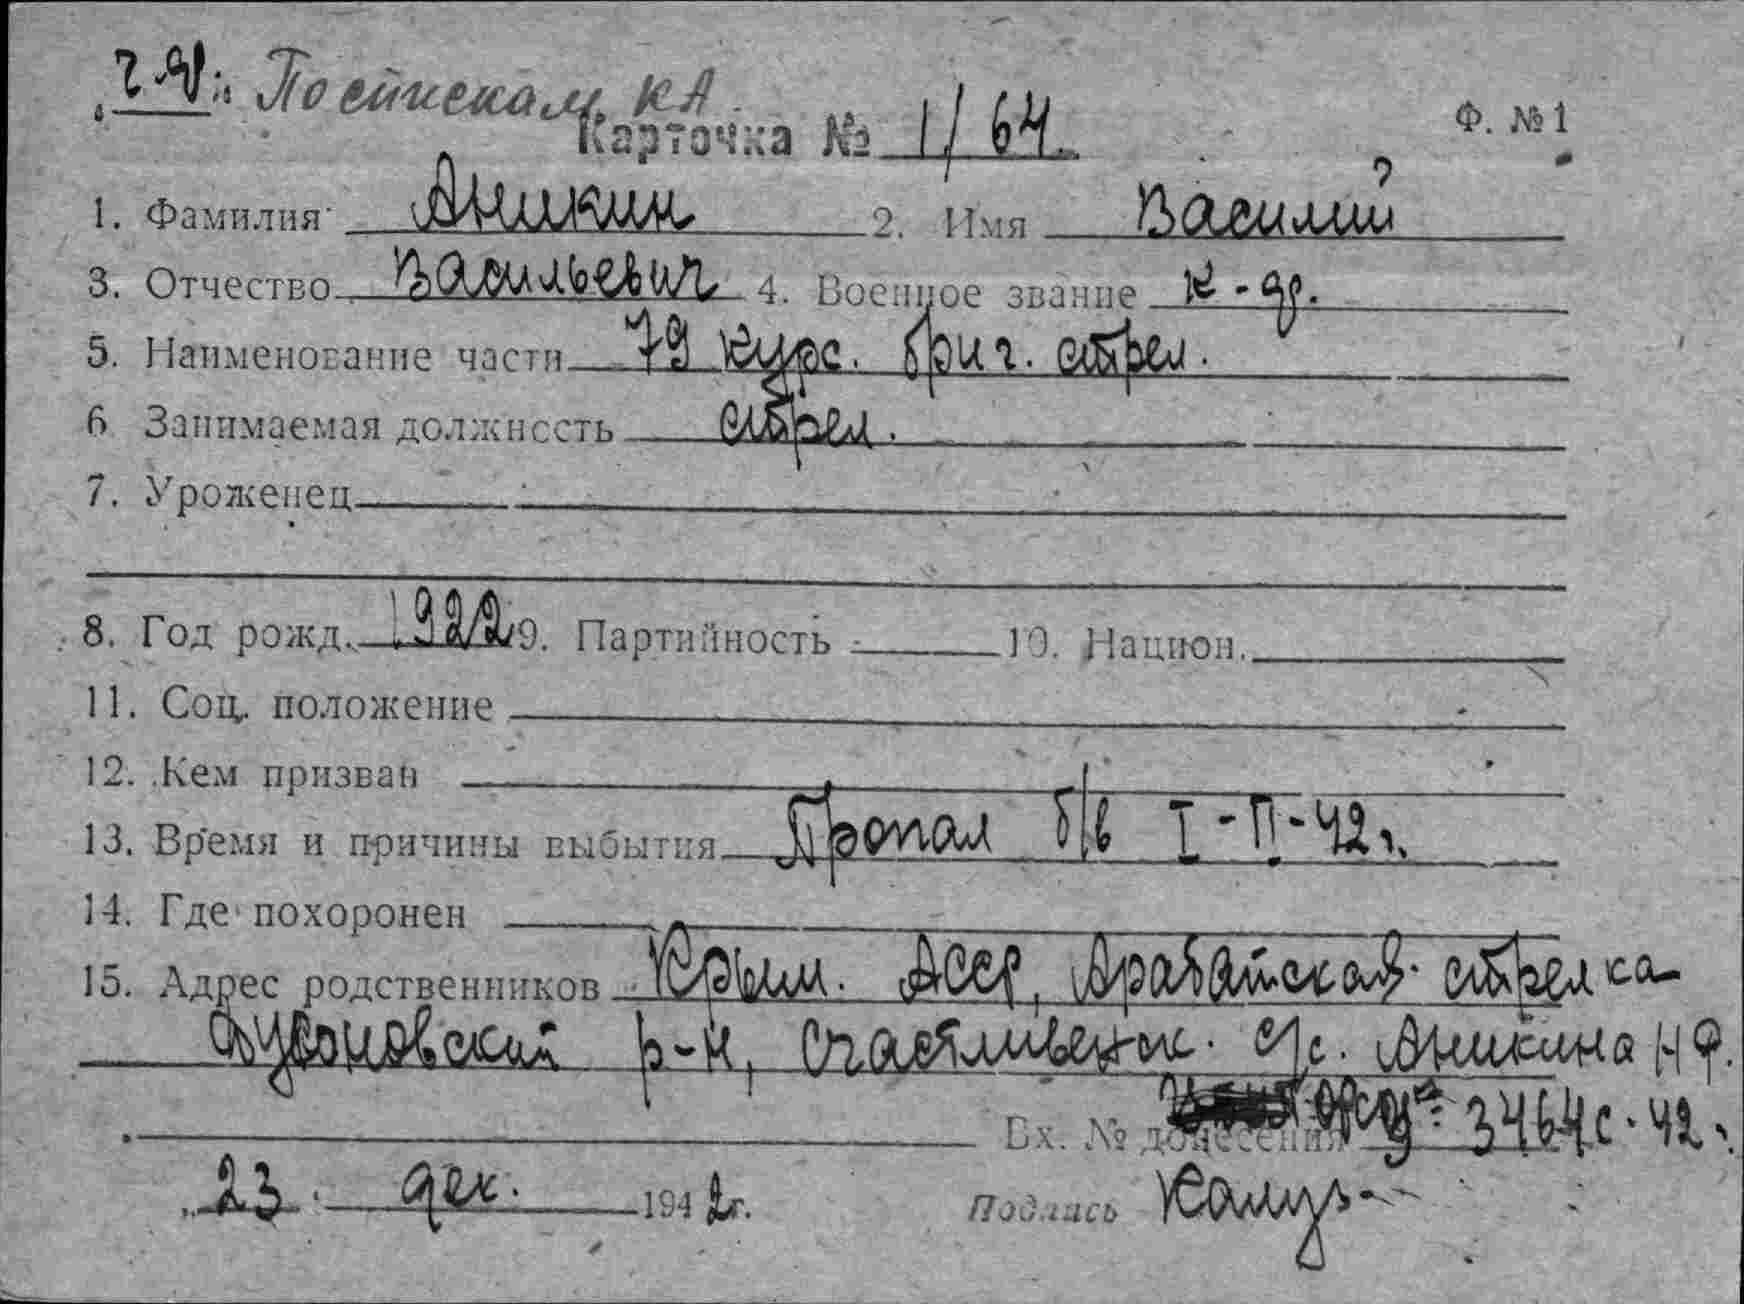 По спискам КА
Карточка № 1/64. Ф. №1
1. Фамилия Аникин 2. Имя Василий
3. Отчество Васильевич 4. Военное звание к-др.
5. Наименование части 79 курс. бриг. стрел.
6 Занимаемая должность стрел.
7. Уроженец
8. Год рожд. 1922 9. Партийность 10. Национ.
11. Соц. положение
12. Кем призван
13. Время и причины выбытия Пропал б/в I-II-42г.
14. Где похоронен
15. Адрес родственников Крым. АССР, Арабатская стрелка
р-н, Счастливенск. с/с. Аникина Н Ф.
Вх. № донесения 3464с. 42г.
23. дек. 1942г. Подпись